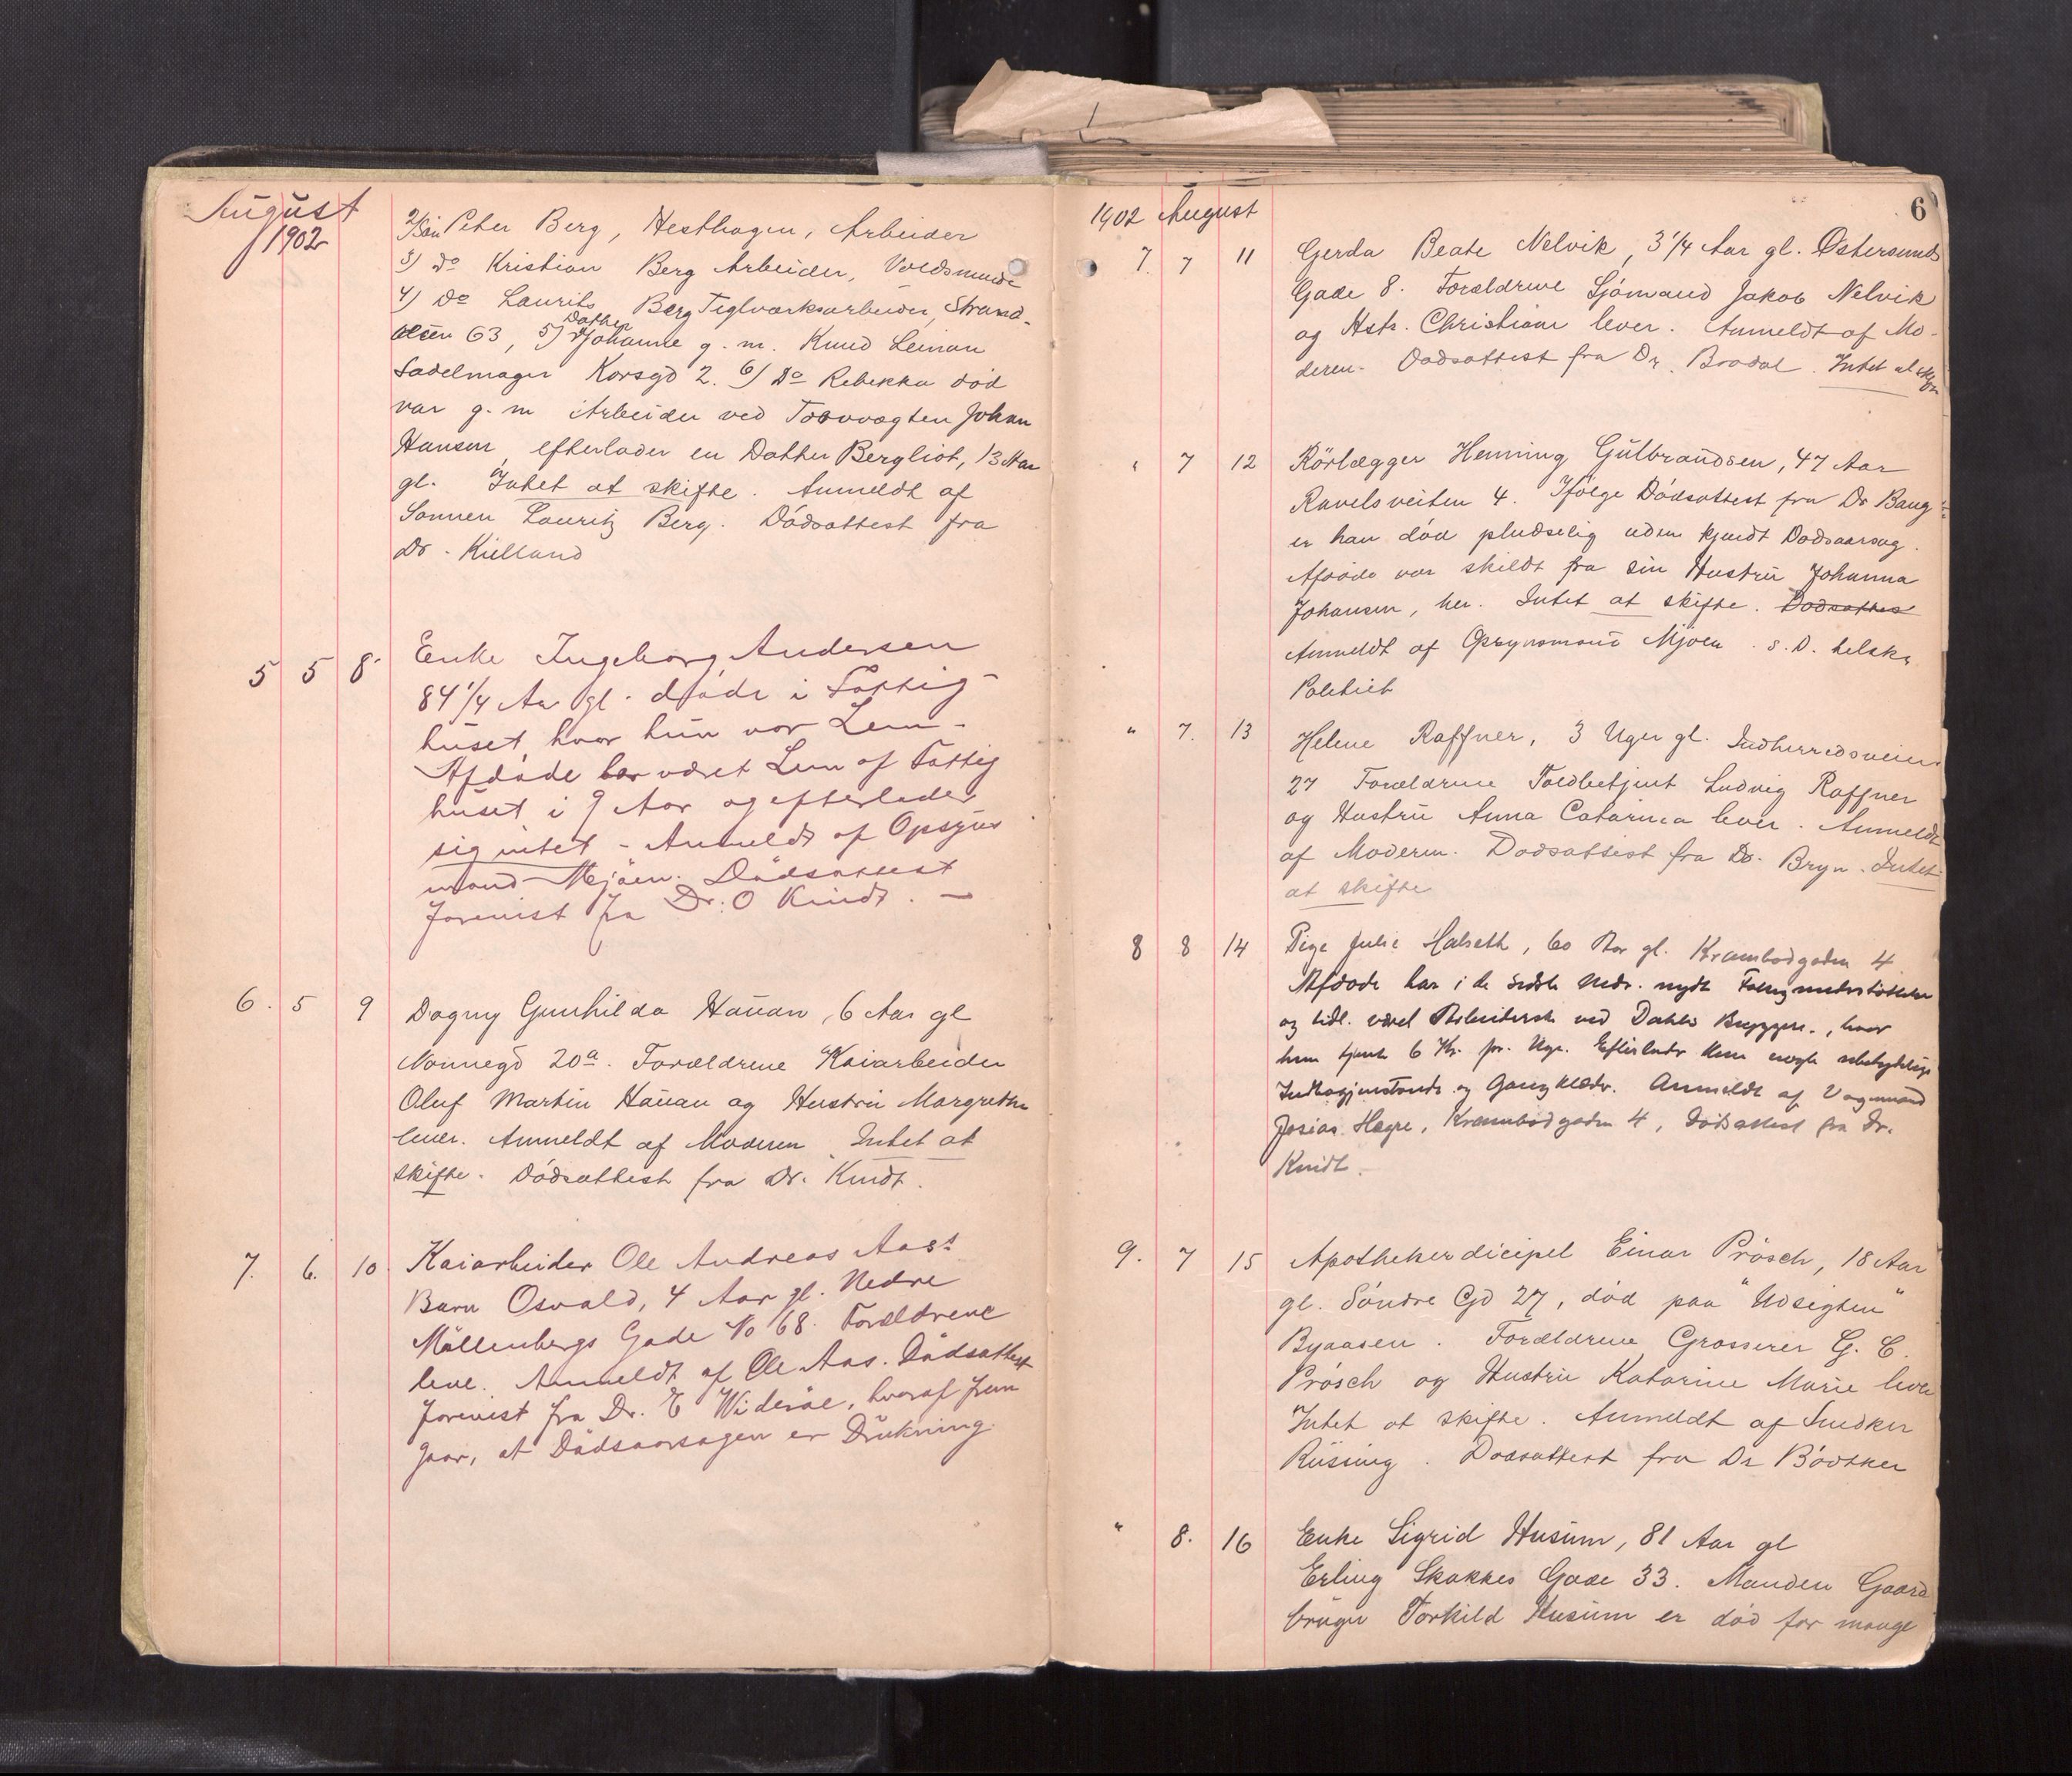 August
1902
2) Søn Peter Berg, Hesthagen, Arbeider
3) do Kristian Berg Arbeider, Voldsminde
4) Do Laurits Berg Teglværksarbeider, Strand-
veien 63, 5) Datter Johanne g. m. Knud Leinan
Sadelmager Korsgd 2. 6) Do Rebekka død
var g. m Arbeider ved Torvvægten Johan
Hansen, efterlader en Datter Bergliot, 13 Aar
gl. Intet at skifte. Anmeldt af
Sønnen Lauritz Berg. Dødsattest fra
Dr. Kielland
5 5 8 Enke Ingeborg Andersen
84 1/4 Aar gl. døde i Fattig-
huset, hvor hun var Lem -
Afdøde har været Lem af Fattig
huset i 9 Aar og efterlader
sig intet - Anmeldt af Opsyns
mand Mjøen. Dødsattest
forevist fra Dr: O Kindt. -
6. 5 9 Dagny Gunhilda Hauan, 6 Aar gl
Nonnegd 20a. Forældrene Kaiarbeider
Oluf Martin Hauan og Hustru Margrethe
lever. Anmeldt af Moderen Intet at
skifte. Dødsattest fra Dr. Kindt.
7. 6. 10 Kaiarbeider Ole Andreas Aas's
Barn Osvald, 4 Aar gl. Nedre
Møllenbergs Gade No 68. Forældrene
leve. Anmeldt af Ole Aas. Dødsattest
forevist fra Dr. E Widerøe, hvoraf frem
gaar, at Dødsaarsagen er Drukning.
6
1902 August
7. 7 11 Gerda Beate Nelvik, 3 1/4 Aar gl. Østersunds
Gade 8. Forældrene Sjømand Jakob Nelvik
og Hstr. Christiane lever. Anmeldt af Mo-
deren. Dødsattest fra Dr. Brodal. Intet at
" 7 12 Rörlægger Henning Gulbrandsen, 47 Aar
Ravelsveiten 4. Ifølge Dødsattest fra Dr Bang
er han død pludselig uden kjendt Dødsaarsag.
Afdøde var skildt fra sin Hustru Johanna
Johansen, her. Intet at skifte. Dødsattes
Anmeldt af Opsynsmand Mjøen. S. D.
Politiet
" 7. 13 Helene Raffner, 3 Uger gl. Indherredsveien
27 Forældrene Toldbetjent Ludvig Raffner
og Hustru Anna Catarina lever. Anmeldt
af Moderen. Dødsattest fra Dr. Bryn. Intet
at skifte
8 8 14 Pige Julie Halseth, 60 Aar gl. Krambodgaden 4
Afdøde har i de sidste Mdr. nydt Fattigunderstøttelse
og tidl. været Arbeiderske ved Dahls Bryggeri, hvor
hun tjente 6 Kr. pr. Uge. Efterlader kun nogle ubetydelige
Indbogjenstande og Gangklæder. Anmeldt af Vognmand
Josias Hegre, Krambodgaden 4, Dødsattest fra Dr.
Kindt.
9. 7 15 Apothekerdicipel Einar Prösch, 18 Aar
gl. Søndre Gd 27, død paa "Udsigten"
Byaasen. Forældrene Grosserer G. C.
Prösch og Hustru Katarine Marie lever
Intet at skifte. Anmeldt af Snedker
Rüsing. Dødsattest fra Dr Bødtker
" 8. 16 Enke Sigrid Husum, 81 Aar gl
Erling Skakkes Gade 33. Manden Gaard
bruger Torkild Husum er død for mange